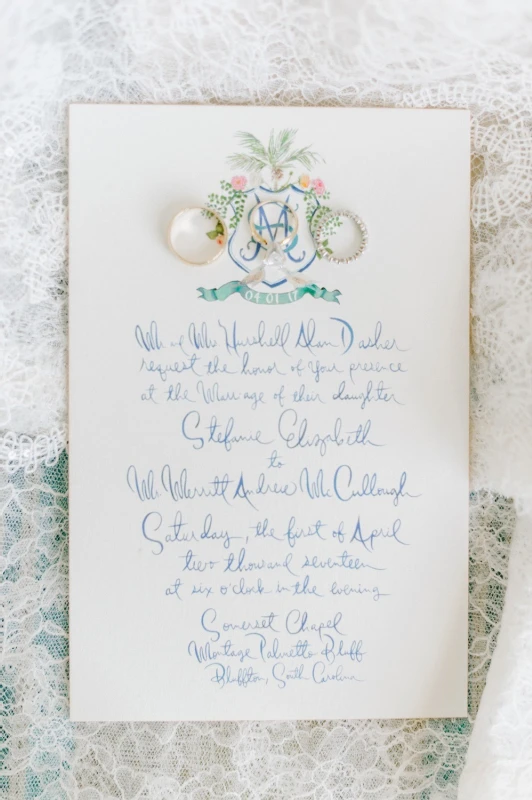 04 01 17
Mr. and Mrs. Harshell Alan Dasher
request the honor of your presence
at the Marriage of their daughter
Stefanie Elizabeth
to
Mr. Merritt Andrew McCullough
Saturday, the first of April
two thousand seventeen
at six o'clock in the evening
Somerset Chapel
Montage Palmetto Bluff
Bluffton, South Carolina